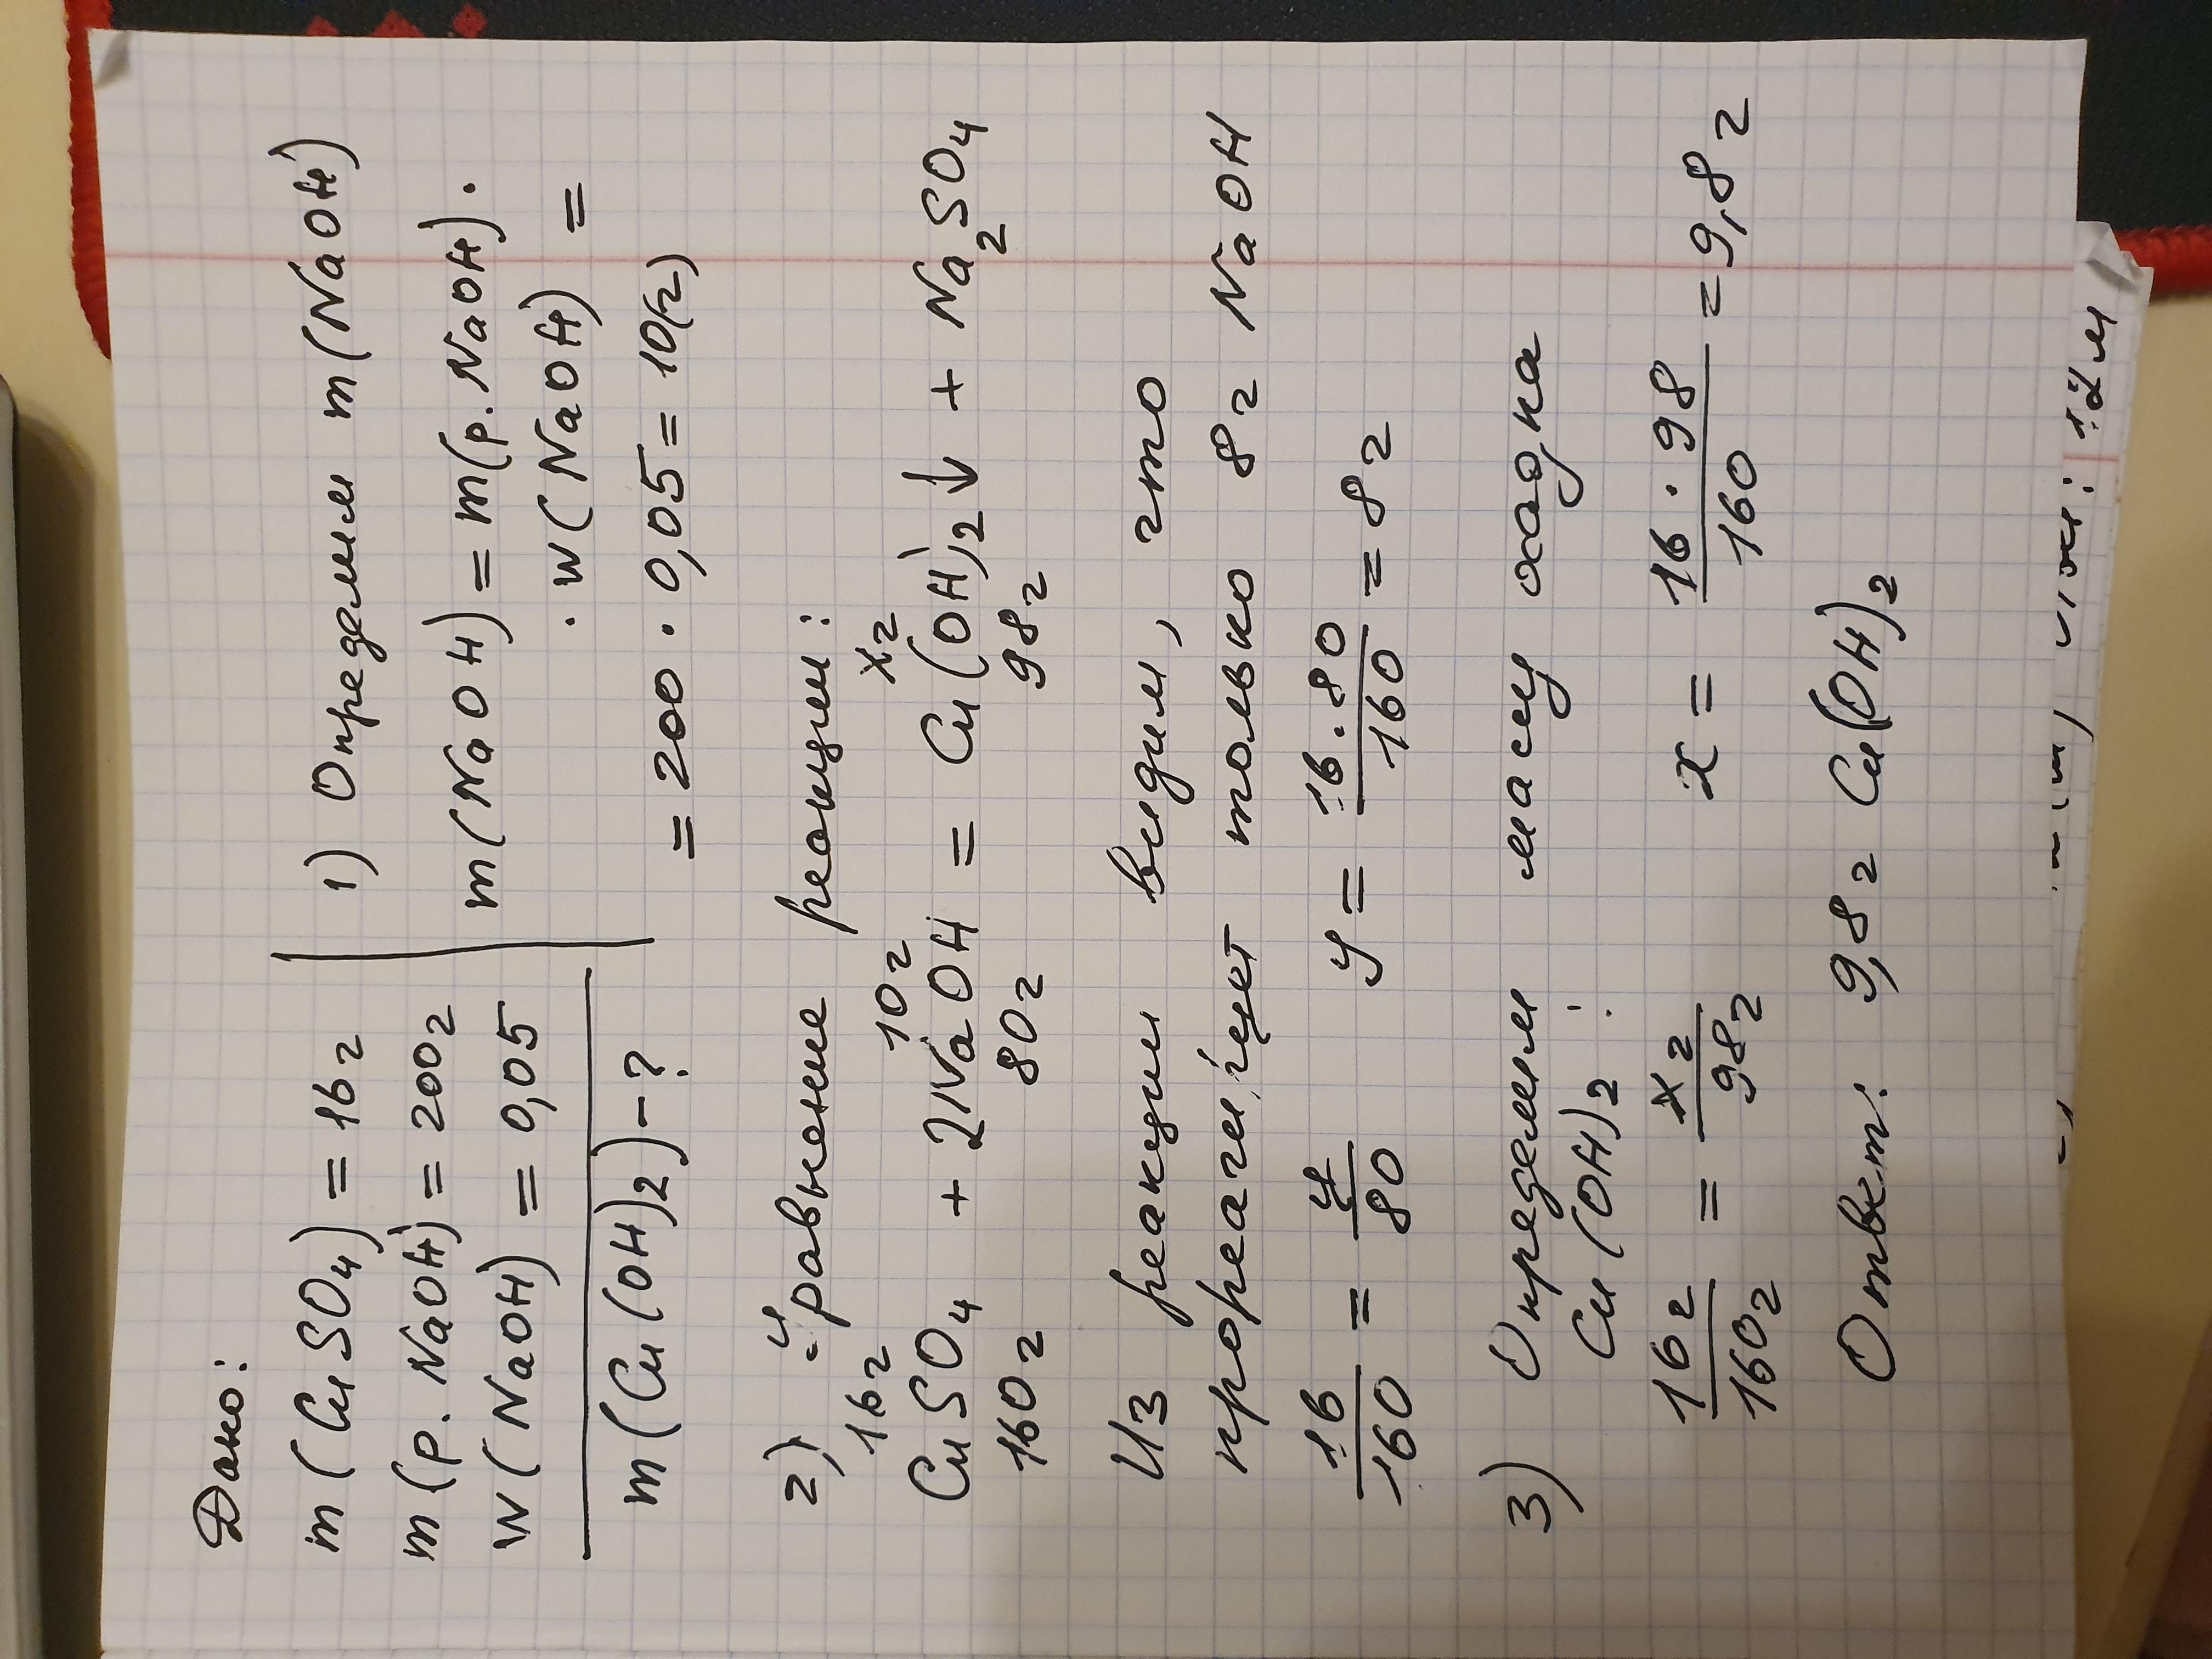 Дано:
m(CuSO₄) = 16г
m(р. NaOH) = 200г
w(NaOH) = 0,05
m(Cu(OH)₂) - ?
1) Определим m(NaOH)
m(NaOH) = m(р. NaOH) ·
· w(NaOH) =
= 200 · 0,05 = 10(г)
2) уравнение реакции:
16г 10г xг
CuSO₄ + 2NaOH = Cu(OH)₂↓ + Na₂SO₄
160г 80г 98г
Из реакции видим, что
прореагирует только 8г NaOH
16/160 = y/80 y = 16·80/160 = 8г
3) Определим массу осадка
Cu(OH)₂:
16г/160г = xг/98г x = 16·98/160 = 9,8г
Ответ: 9,8г Cu(OH)₂